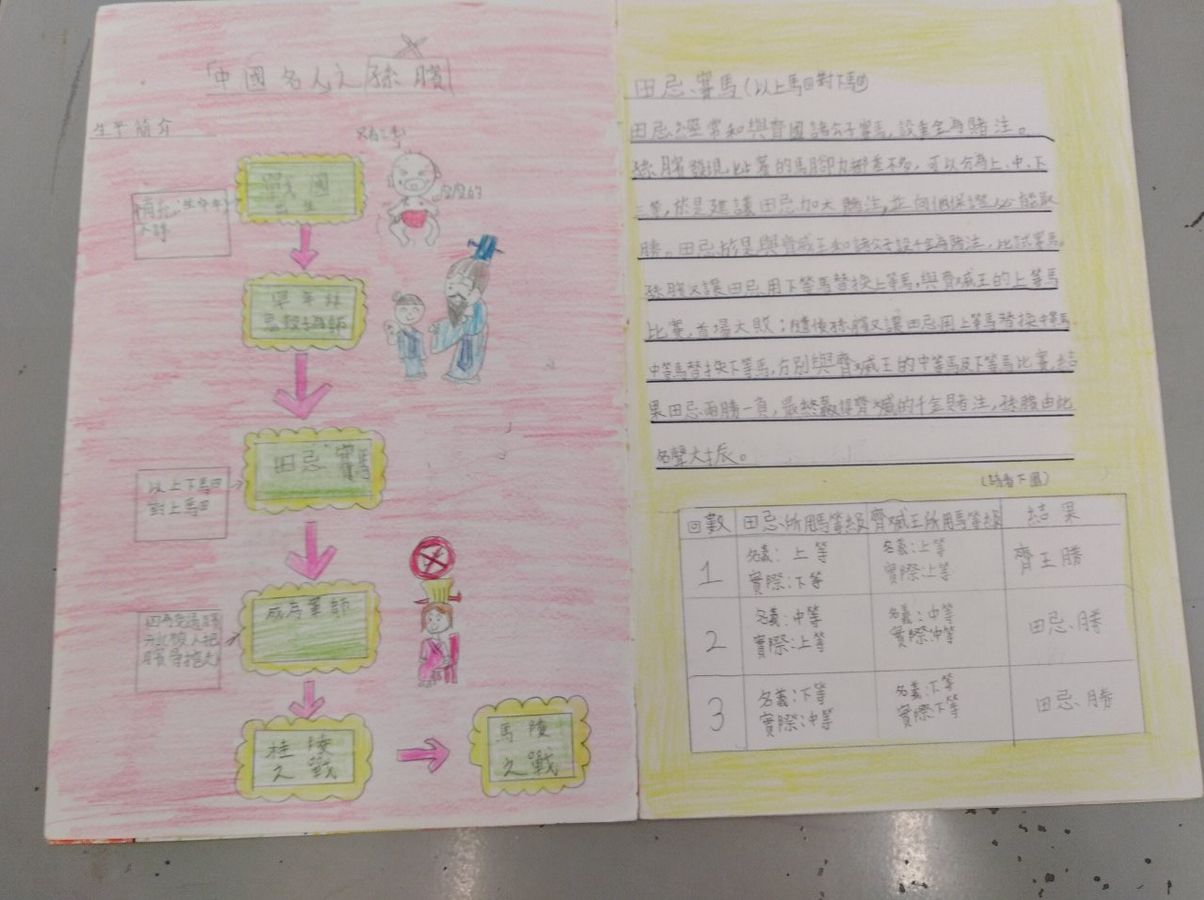 「中國名人之孫臏
生平簡介
補充:生卒年
不詳
戰國
出生
早年拜
鬼谷為師
田忌賽馬
以上下馬
對上馬
成為軍師
桂陵
之戰
馬陵
之戰
田忌賽馬(以上馬對下馬)
田忌經常和與齊國諸公子賽馬,設重金為賭注。
孫臏發現比賽的馬腳力都差不多,可以分為上、中、下
三等,於是建議田忌加大賭注,並向他保證必能取
勝。田忌於是與齊威王和諸公子設千金為賭注,比試賽馬。
孫臏又讓田忌用下等馬替換上等馬,與齊威王的上等馬
比賽,首場大敗;隨後孫臏又讓田忌用上等馬替換中等馬,
中等馬替換下等馬,分別與齊威王的中等馬及下等馬比賽,結
果田忌兩勝一負,最終贏得齊威的千金賭注,孫臏由此
名聲大振。
(請看下圖)
回數 田忌所用馬等級 齊威王所用馬等級 結果
1 名義:上等 名義:上等 齊王勝
實際:下等 實際:上等
2 名義:中等 名義:中等 田忌勝
實際:上等 實際:中等
3 名義:下等 名義:下等 田忌勝
實際:中等 實際:下等